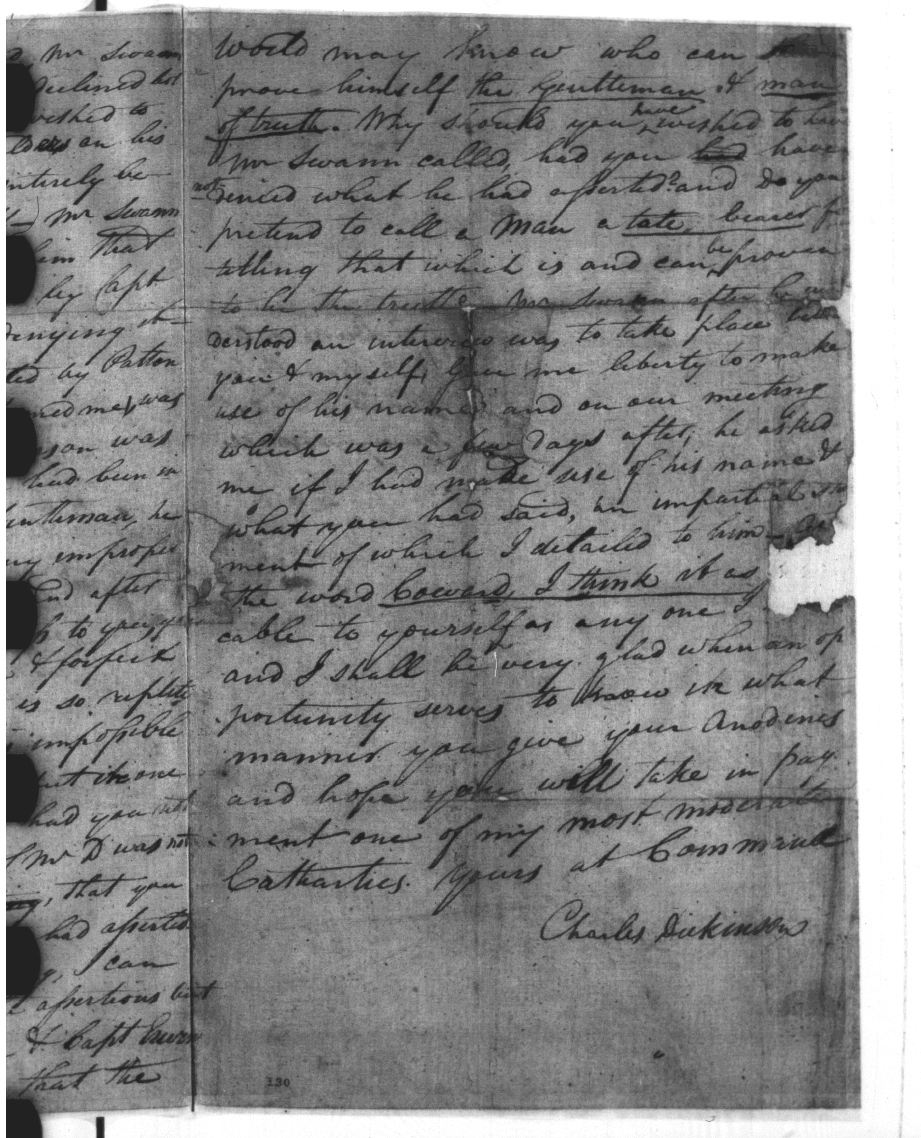 Mr Swann
declined but
wished to
on his
entirely be
Mr Swann
him that
by Capt
denying it
ted by Patton
me, was
was
had been in
Gentleman, he
ny improper
and after
to you, 
& forfeit
is so replete
impossible
but in one
had you not
Mr D was not
that you
had asserted
can
assertions but
& Capt Ervin
that the
World may know who can
prove himself the Gentleman & man
of truth. Why should you have wished to have
Mr Swann called, had you had have
not denied what he had asserted? and do you
pretend to call a Man a tale bearer for
telling that which is and can be proven
to be the truth. Mr Swann after he un
derstood an interview was to take place
you & myself, gave me liberty to make
use of his name and on our meeting
which was a few days after, he asked
me if I had made use of his name &
what you had said, an impartial
ment of which I detailed to him
the word Coward, I think it as
cable to yourself as any one I
and I shall be very glad when an op
portunity serves to know in what
manner you give your Anodines
and hope you will take in pay
ment one of my most moderate
Cathartics. Yours at Command
Charles Dickinson
130